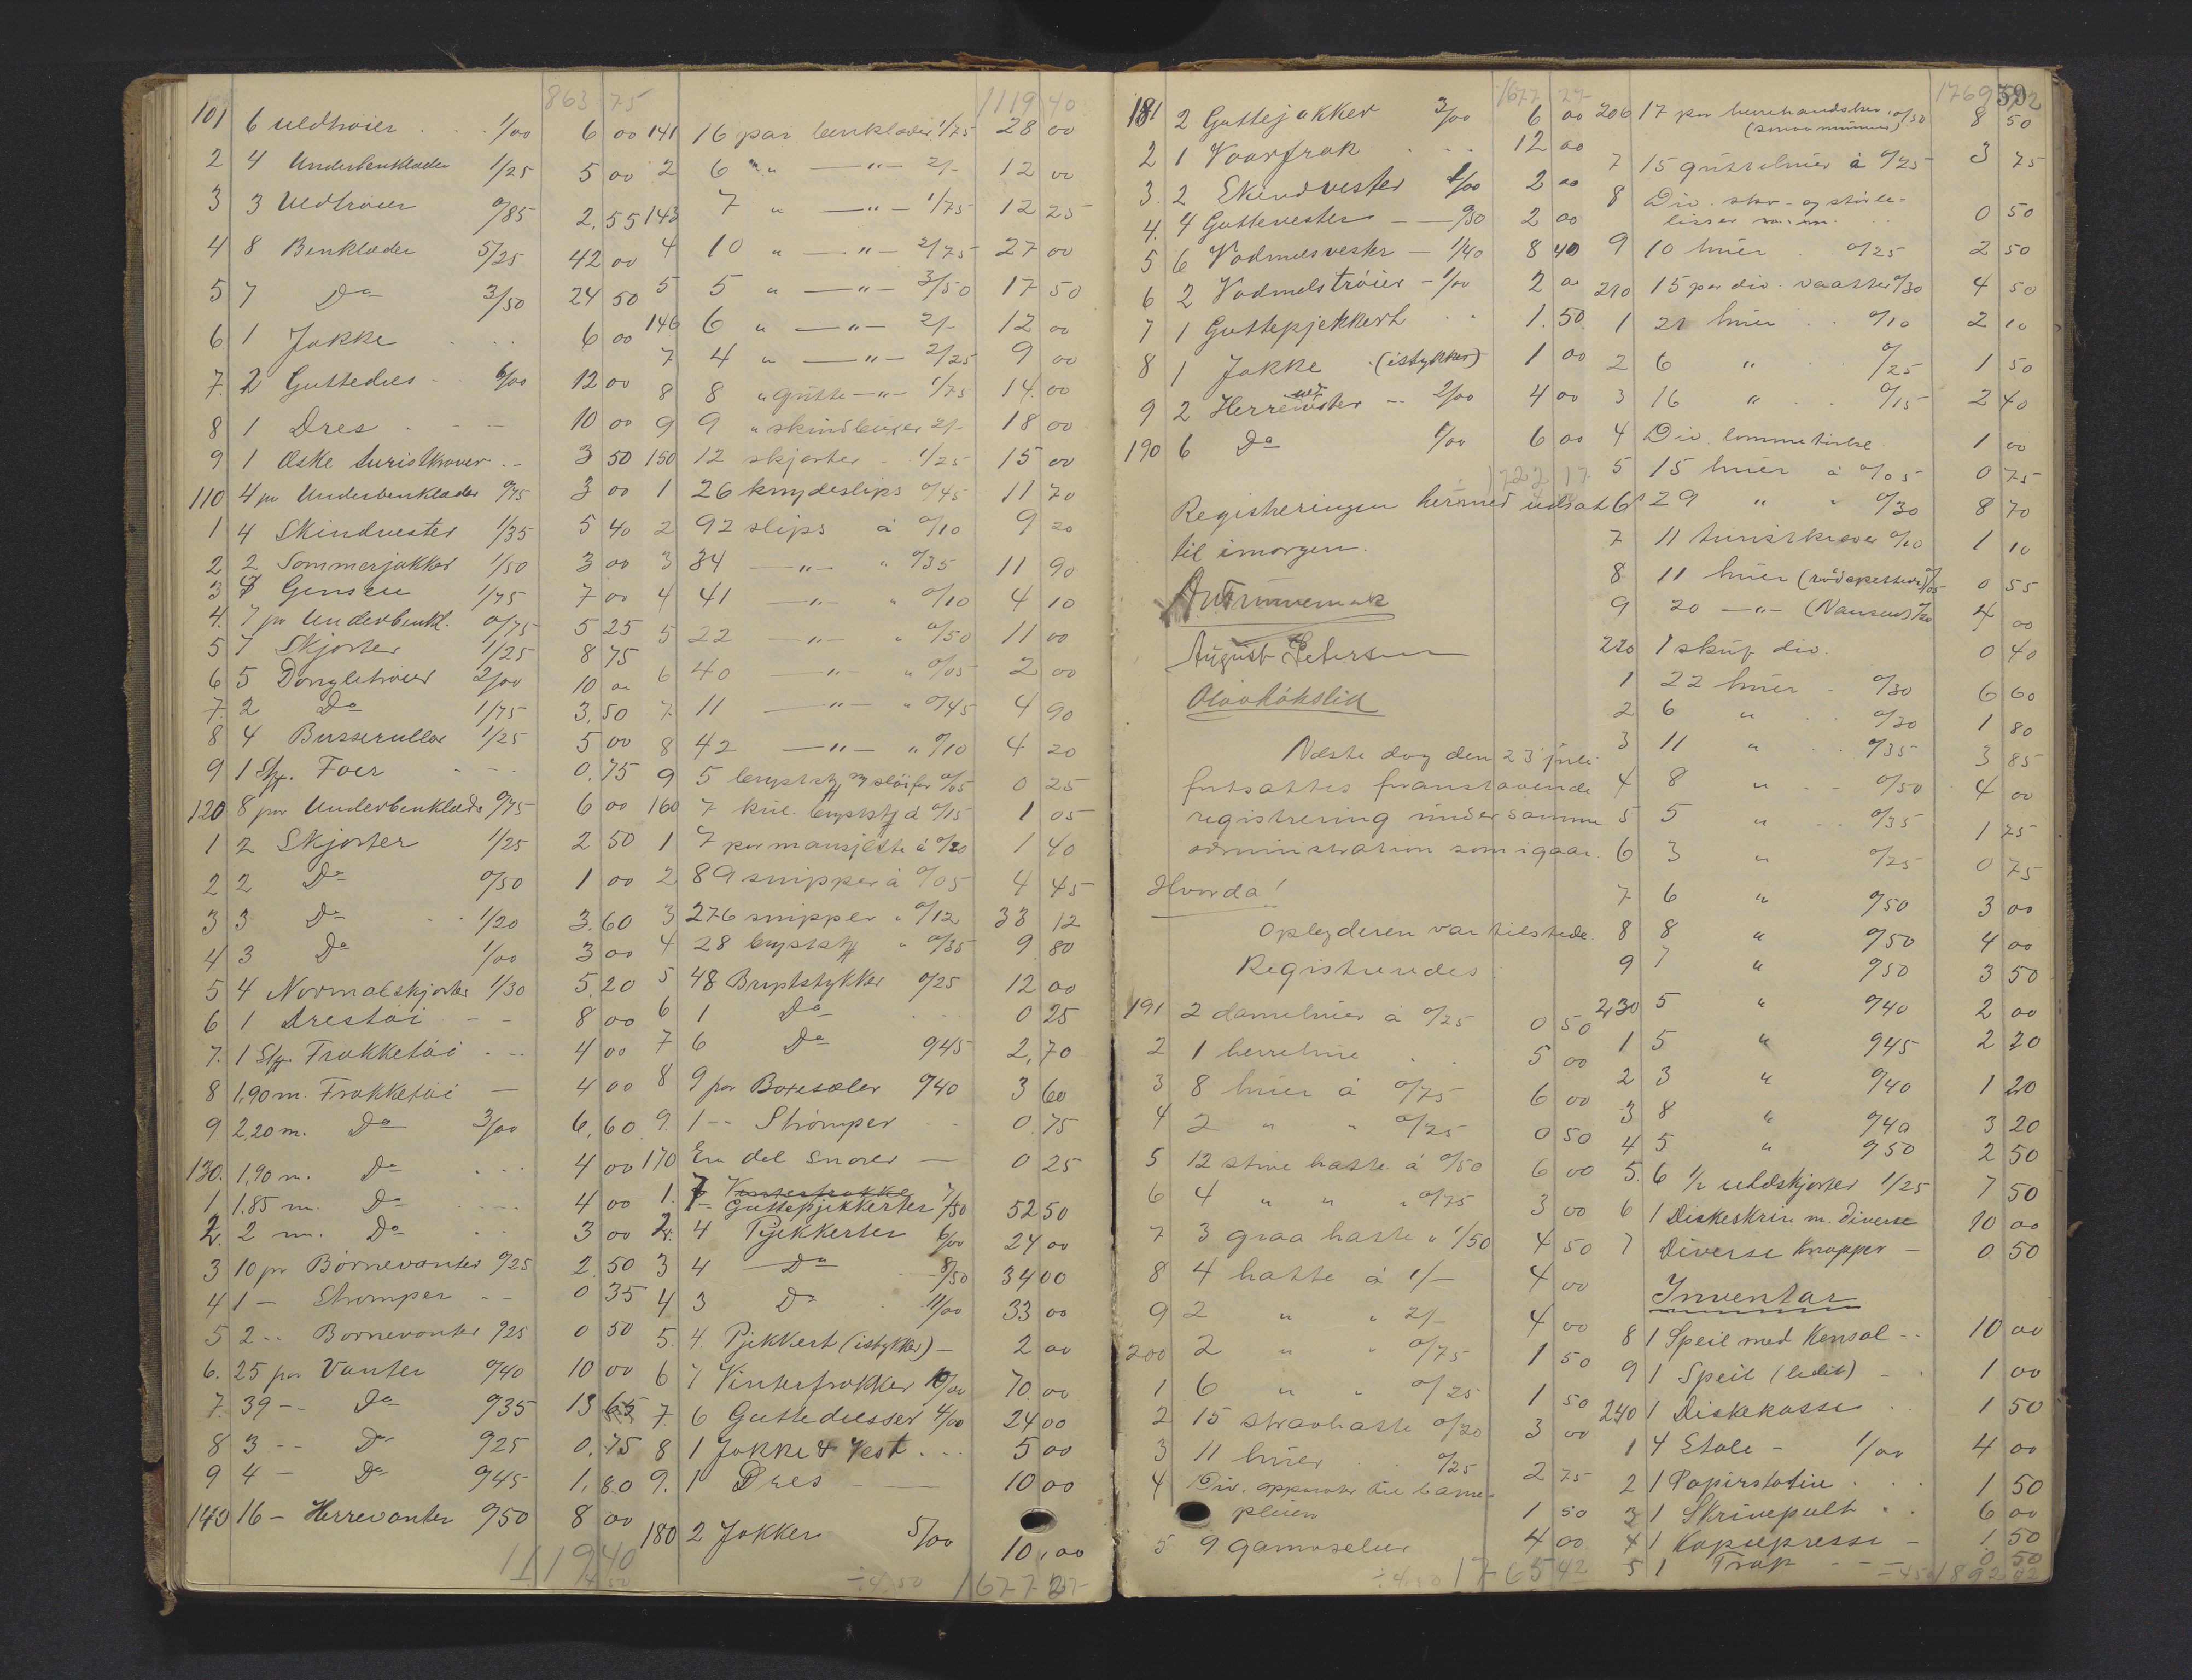 863 75
101 6 uldtrøier . . . 1/00 6 00
2 4 Underbenklæder 1/25 5 00
3 3 Uldtrøier 0/85 2,55
4 8 Benklæder 5/25 42 00
5 7 Do 3/50 24 50
6 1 Jakke . . . 6 00
7. 2 Guttedres . . 6/00 12 00
8 1 Dres . - - 10 00
9 1 Æske turistkraver . - 3 50
110 4 pr Underbenklæder 0/75 3 00
1 4 Skindvester 1/35 5 40
2 2 Sommerjakker 1/50 3 00
3 Gensere 1/75 7 00
4. 7 pr Underbenkl. 0/75 5 25
5 7 Skjorter 1/25 8 75
6 5 Dongletrøier 2/00 10 00
7. 2 Do 1/75 3,50
8 4 Busseruller 1/25 5 00
9 1 Stk. Foer - - - 0.75
120 8 par Underbenklæder 0/75 6 00
1 2 Skjorter 1/25 2 50
2 2 Do 0/50 1 00
3 3 Do . . 1/20 3,60
4 3 Do 1/00 3 00
5 4 Normalskjorter 1/30 5,20
6 1 Drestøi - - 8 00
7. 1 Stk. Frakketøi . - . 4 00
8 1,90 m. Frakketøi — 4 00
9 2,20 m. Do 3/00 6,60
130. 1,90 m. Do . . . 4 00
1 1.85 m. Do . - . . 4 00
2. 2 m. Do . . 3 00
3 10 pr Børnevanter 0/25 2,50
4 1 — Strømper - - 0 35
5 2 -- Børnevanter 0/25 0 50
6. 25 par Vanter 0/40 10 00
7. 39 -- Do 0/35 13 65
8 3 -- Do 0/25 0.75
9 4 — Do 0/45 1,80
140 16 — Herrevanter 0/50 8 00
1119 40
4.50
1119 40
141 16 par benklæder 1/75 28 00
2 6 " —"— 2/- 12 00
143 7 " —"— 1/75 12 25
4 10 " —"— 2/75 27 00
5 5 " —"— 3/50 17 50
146 6 " —"— 2/- 12 00
7 4 " —"— 2/25 9 00
8 8 " gutte —"— 1/75 14.00
9 9 " skindbuxer 2/- 18 00
150 12 skjorter . . 1/25 15 00
1 26 knydeslips 0/45 11 70
2 92 slips à 0/10 9 20
3 34 —"— " 0/35 11 90
4 41 —"— " 0/10 4 10
5 22 —"— " 0/50 11 00
6 40 —"— " 0/05 2 00
7. 11 —"— " 0/45 4 90
8 42 —"— " 0/10 4 20
9 5 brystst. og sløifer 0/05 0 25
160 7 kul. brystst à 0/15 1 05
1 7 par mansjette à 0/20 1 40
2 89 snipper à 0/05 4 45
3 276 snipper " 0/12 33 12
4 28 brystst " 0/35 9 80
5 48 Bryststykker 0/25 12 00
6 1 Do . . . 0 25
7 6 Do 0/45 2,70
8 9 par Boxesæler 0/40 3 60
9. 1 -- Strømper - - 0.75
170 En del Snorer — 0 25
1. 7 Vinterfrakker
Guttepjekkerter 7/50 52 50
2. 4 Pjekkerter 6/00 24 00
3 4 Do 8/50 34 00
4 3 Do . 11/00 33 00
5. 4. Pjekkert (istykker) — 2 00
6 7 Vinterfrakker 10/00 70.00
7. 6 Guttedresser 4/00 24 00
8 1 Jakke & Vest . - . 5 00
9. 1 Dres - — 10 00
180 2 Jakker 5/00 10,00
÷ 4.50 1677 27
1677 27
181 2 Guttejakker 3/00 6 00
2 1 Vaarfrak . - . 12 00
3. 2 Skindvester 1/00 2 00
4. 4 Guttevester — 0/50 2 00
5 6 Vadmelsvester — 1/40 8 40
6 2 Vadmelstrøier - 1/00 2 00
7 1 Guttepjekkert . . 1.50
8 1 Jakke . (istykker) 1 00
9 2 Herrevester -- 2/00 4 00
190 6 Do 1/00 6 00
1722 17
Registreringen hermed udsat
til imorgen.
August Petersen
Næste dag den 23 juli
fortsattes foranstaaende
registrering under samme
administration som igaar.
Hvorda!
Opbyderen var tilstede.
Registreredes:
191 2 damehuer à 0/25 0 50
2 1 herrehue . . 5 00
3 8 huer à 0/75 6 00
4 2 " " 0/25 0 50
5 12 stive hatte à 0/50 6 00
6 4 " " " 0/75 3 00
7 3 graa hatte " 1/50 4 50
8 4 hatte à 1/- 4 00
9 2 " " 2/- 4 00
200 2 " " 0/75 1 50
1 6 " " 0/25 1 50
2 15 straahatte 0/20 3 00
3 11 huer . . 0/25 2 75
4 Div. apparater til barne-
pleien 1 50
5 9 gamascher 4 00
÷ 4.50 1765 42
1769 92
39
206 17 par herrehandsker 0/50 8 50
(smaa numre)
7 15 guttehuer à 0/25 3 75
8 Div. sko- og støvle-
lisser m.m. . . . 0 50
9 10 huer . . 0/25 2 50
210 15 par div. vaatter 0/30 4 50
1 21 huer . . 0/10 2 10
2 6 " . 0/25 1 50
3 16 " . . 0/15 2 40
4 Div. lommetørkl. 1 00
5 15 huer à 0/05 0 75
6 29 " " 0/30 8 70
7 11 turistkraver 0/10 1 10
8 11 huer (rødspettede) 0/05 0 55
9 20 —"— (Nansens) 0/20 4 00
220 1 skuf div. 0 40
1 22 huer - 0/30 6 60
2 6 " . . 0/30 1 80
3 11 " . . 0/35 3 85
4 8 " . - 0/50 4 00
5 5 " . . . 0/35 1 75
6 3 " 0/25 0 75
7 6 " 0/50 3 00
8 8 " 0/50 4 00
9 7 " 0/50 3 50
230 5 " 0/40 2 00
1 5 " 0/45 2 20
2 3 " 0/40 1 20
3 8 " 0/40 3 20
4 5 " 0/50 2 50
5. 6 1/2 uldskjorter 1/25 7 50
6 1 Diskeskrin m. diverse 10 00
7 Diverse knapper — 0 50
Inventar
8 1 Speil med Konsol -- 10 00
9 1 Speil (lidet) - . 1 00
240 1 Diskekasse . . 1 50
1 4 Stole - 1/00 4 00
2 1 Papirstativ . . . 1 50
3 1 Skrivepult . . 6 00
4 1 Kopiepresse - 1.50
5 1 Trap - - - 0 50
÷ 4.50 1892 02